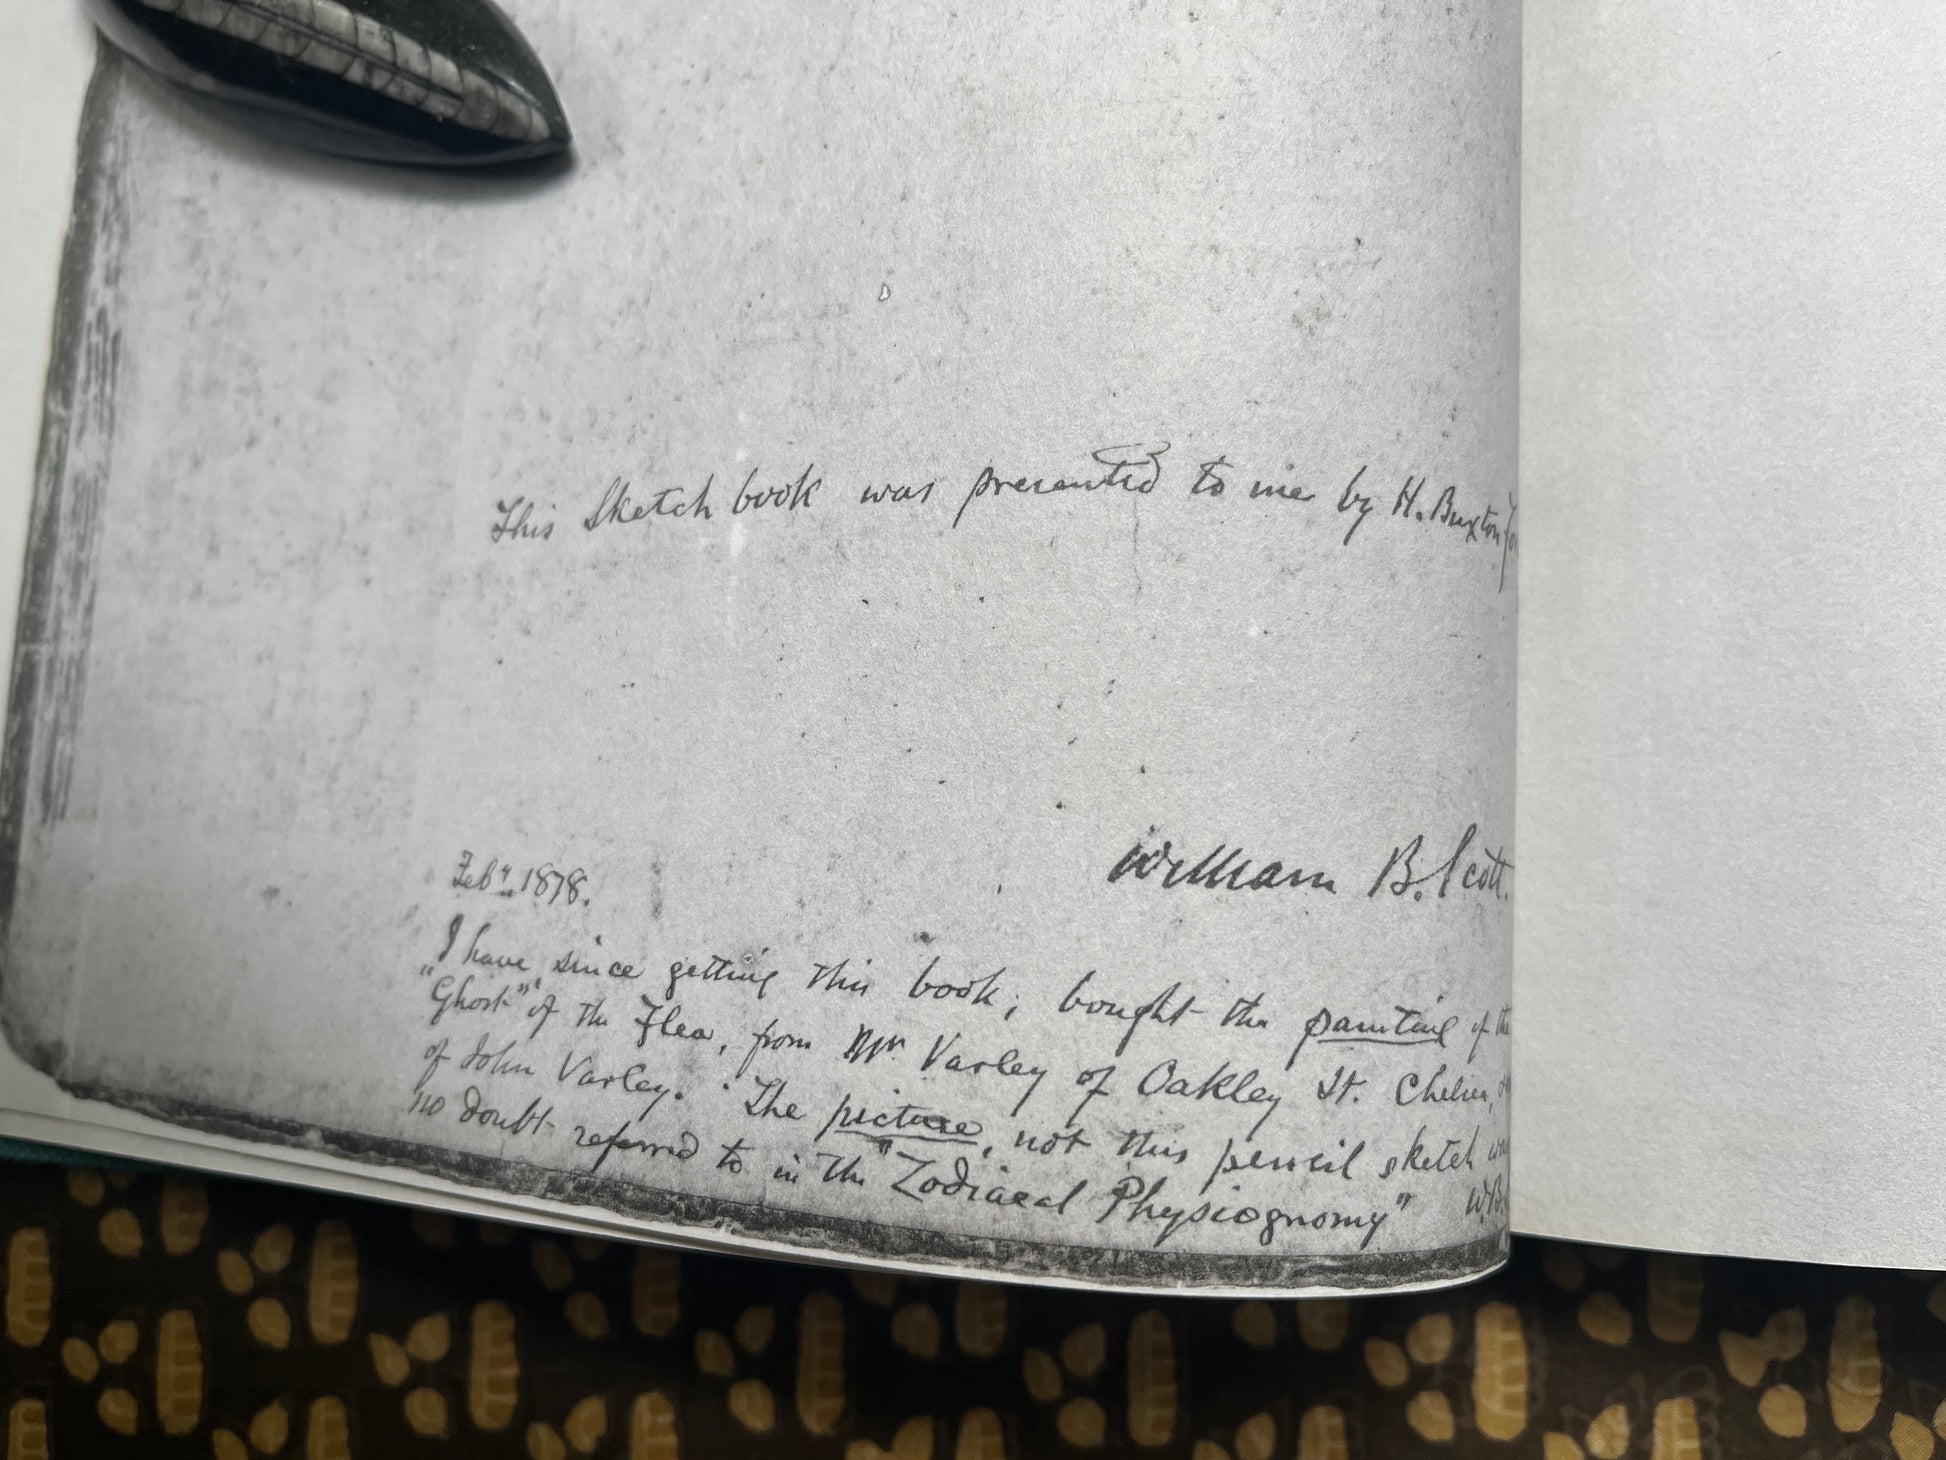 This Sketch book was presented to me by H. Buxton
William B. Scott.
Feby. 1878.
I have, since getting this book, bought the painting of the
"Ghost" of the Flea, from Mr Varley of Oakley St. Chelsea,
of John Varley. The picture, not this pencil sketch was
no doubt referred to in the "Zodiacal Physiognomy" W.B.